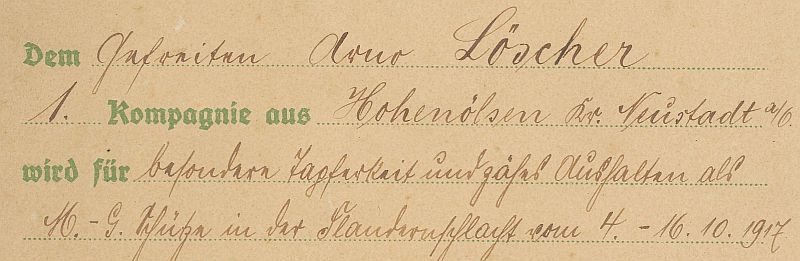 Dem Gefreiten Arno Löscher
1. Kompagnie aus Hohenölsen Kr. Neustadt a/O.
wird für besondere Tapferkeit und zähes Aushalten als
M.-G. Schütze in der Flandernschlacht vom 4. - 16. 10. 1917